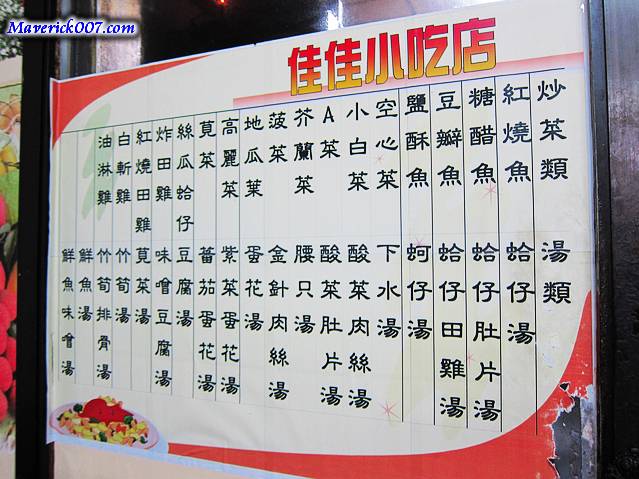 Maverick007.com
佳佳小吃店
炒菜類
紅燒魚
糖醋魚
豆瓣魚
鹽酥魚
空心菜
小白菜
A菜
芥蘭菜
菠菜
地瓜葉
高麗菜
莧菜
絲瓜蛤仔
炸田雞
紅燒田雞
白斬雞
油淋雞
湯類
蛤仔湯
蛤仔肚片湯
蛤仔田雞湯
蚵仔湯
下水湯
酸菜肉絲湯
酸菜肚片湯
腰只湯
金針肉絲湯
蛋花湯
紫菜蛋花湯
蕃茄蛋花湯
豆腐湯
味噲豆腐湯
莧菜湯
竹筍湯
竹筍排骨湯
鮮魚湯
鮮魚味噲湯